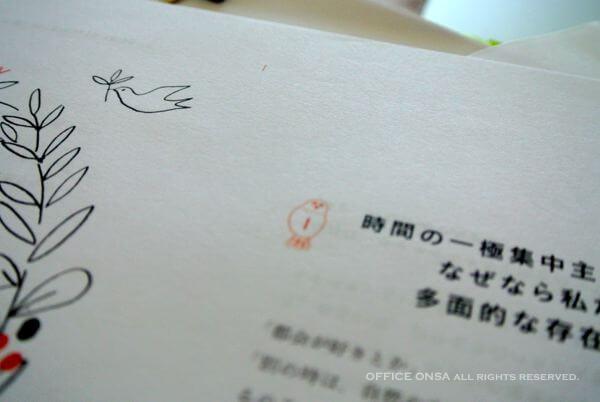 1
時間の一極集中主
なぜなら私た
多面的な存在
「都会が好きとか、
「別の時は、自然の
OFFICE ONSA ALL RIGHTS RESERVED.